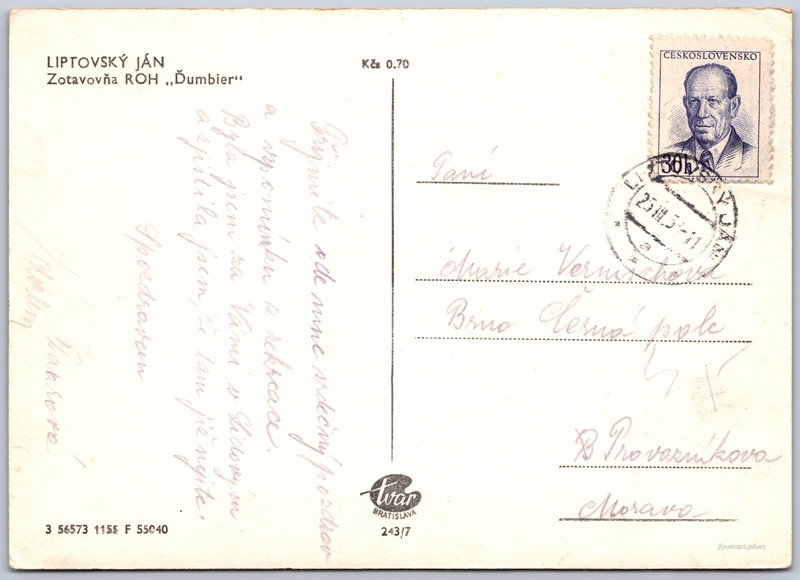 LIPTOVSKÝ JÁN
Zotavovňa ROH „Ďumbier“
Kčs 0.70
ČESKOSLOVENSKO
30h
LIPTOVSKÝ JÁN
25.III.5 -11
a
Přijměte ode mne vděčný pozdrav
a vzpomínku z rekreace.
Byla jsem za Vámi v Lidovým
a zjistila jsem, že tam již nejste.
S pozdravem
Vaňková
Paní
Marie Vernischova
Brno Černá pole
B Provazníkova
Morava
tvar
BRATISLAVA
243/7
3 56573 1155 F 55040